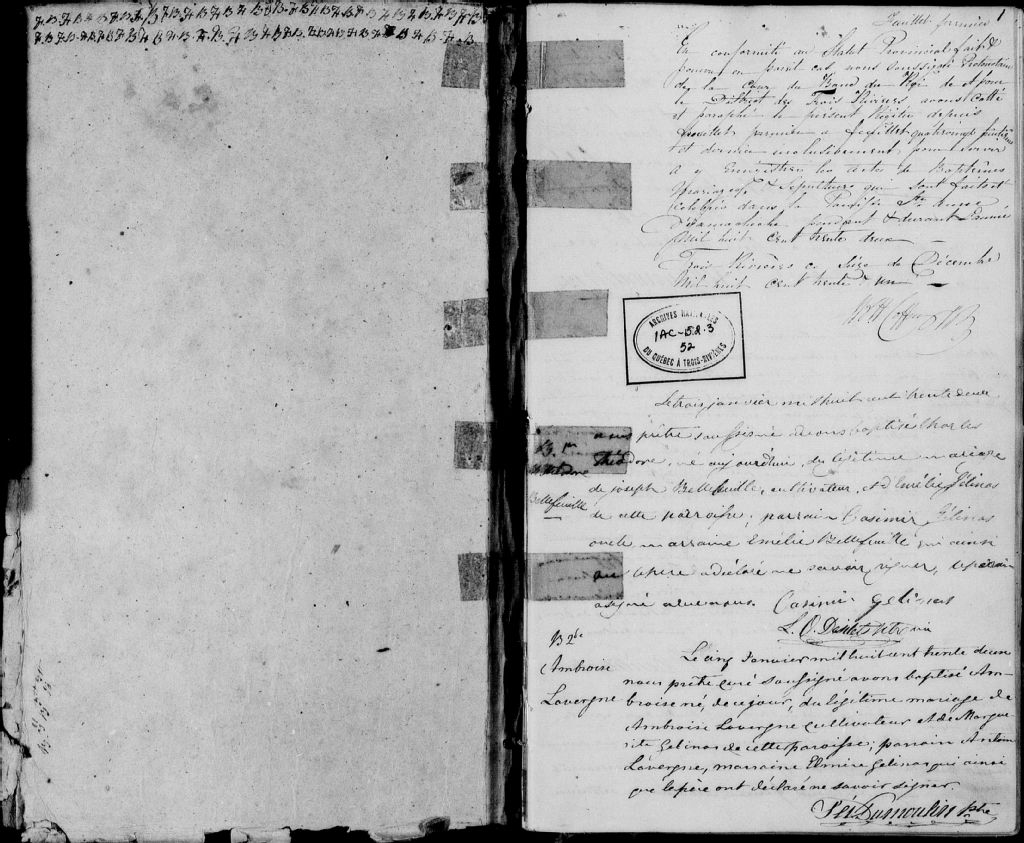 1
Feuillet premier
En conformité au Statut Provincial fait &
pourvu en pareil cas, nous soussigné Protonotaire
de la Cour du Banc du Roi de & pour
le District des Trois Rivières, avons cotté
et paraphé le present Registre depuis
feuillet premier a feuillet quatrevingt
et dernier inclusivement pour servir
a y Enregistrer les actes de Baptêmes
Mariages & Sepultures qui sont faits et
célébrés dans la Paroisse Ste Anne
D'Yamachiche pendant & durant l'année
Mil huit cent trente deux
Trois Rivières ce Seize de Décembre
Mil huit cent trente & un
ARCHIVES NATIONALES
1AC-152-3
52
DU QUÉBEC À TROIS-RIVIÈRES
B. 1er
Théodore
Bellefeuille
Le trois janvier mil huit cent trente deux
nous prêtre soussigné avons baptisé Charles
Théodore, né aujourd'hui, du légitime mariage
de Joseph Bellefeuille, cultivateur, et d'Emélie Gélinas
de cette paroisse; parrain Casimir Gélinas
marraine Emélie Bellefeuille qui ainsi
que le père a déclaré ne savoir signer, le parrain
a signé avec nous. Casimir Gelinas
L. O. Desilets Ptre vic
B 2de
Ambroise
Lavergne
Le cinq Janvier mil huit cent trente deux
nous prêtre curé soussigné avons baptisé Am-
broise né, de ce jour, du légitime mariage de
Ambroise Lavergne cultivateur et de Margue-
rite Gelinas de cette paroisse; parrain Antoine
Lavergne, marraine Elmire Gelinas qui ainsi
que le père ont déclaré ne savoir signer.
Sév. Dumoulin Ptre